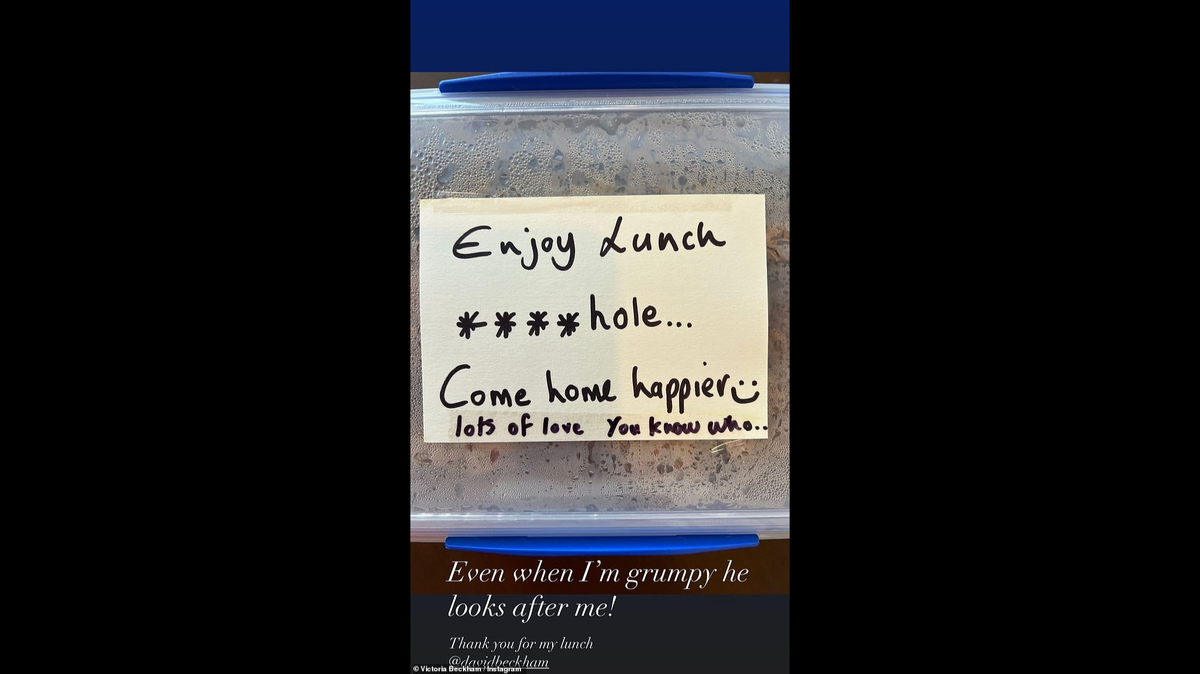 Enjoy Lunch
****hole...
Come home happier :)
lots of love You know who..
Even when I'm grumpy he
looks after me!
Thank you for my lunch
@davidbeckham
© Victoria Beckham / Instagram